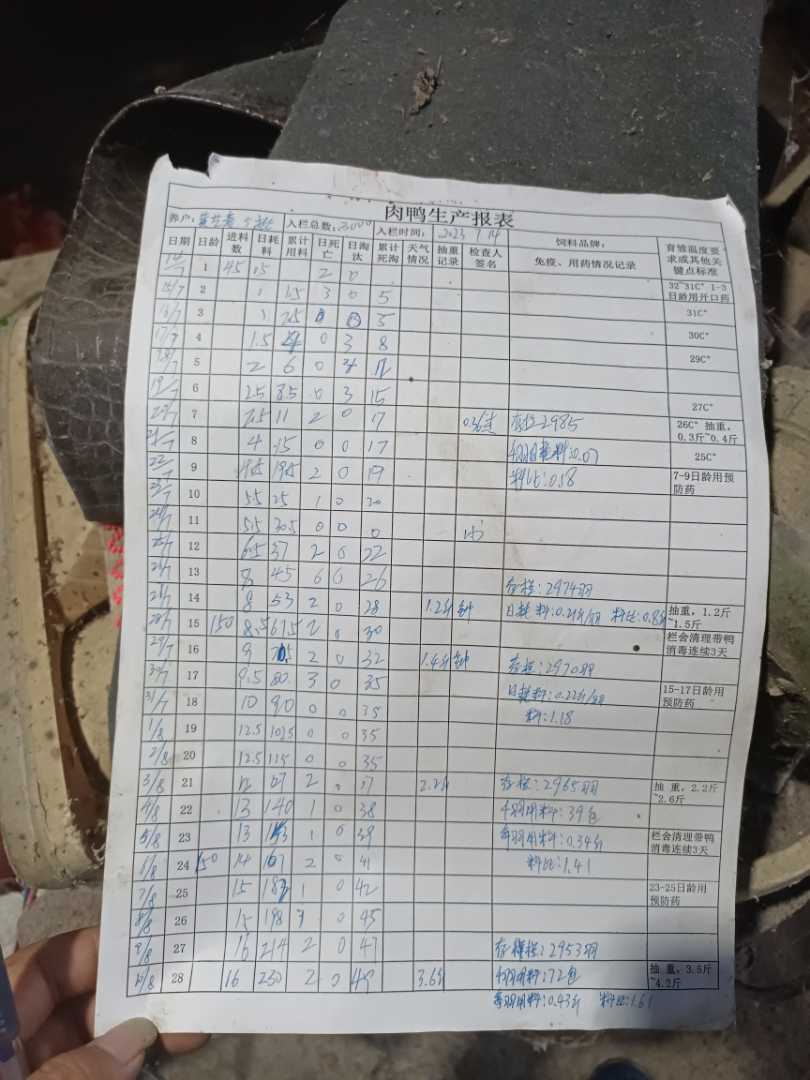 肉鸭生产报表
养户: 入栏总数:3000 入栏时间:2023 7 14 饲料品牌: 育雏温度要求或其他关键点标准
日期 日龄 进料数 日耗料 累计用料 日死亡 日淘汰 累计死淘 天气情况 抽重记录 检查人签名 免疫、用药情况记录
1 45 0.5 2 0
15/7 2 1 1.5 3 0 5 32~31C° 1-3日龄用开口药
16/7 3 1 2.5 0 0 5 31C°
17/7 4 1.5 4 0 3 8 30C°
18/7 5 2 6 0 4 12 29C°
19/7 6 2.5 8.5 0 3 15 27C°
20/7 7 2.5 11 2 0 17 存栏2985 26C° 抽重,0.3斤~0.4斤
21/7 8 4 15 0 0 17 25C°
22/7 9 4.5 19.5 2 0 19 料比:0.58 7-9日龄用预防药
23/7 10 5.5 25 1 0 20
24/7 11 5.5 30.5 0 0 0
25/7 12 6.5 37 2 0 22
13 8 45 6 26 存栏:2974羽
14 8 53 2 0 28 1.2斤 日耗料:0.21斤/羽 料比:0.8 抽重,1.2斤~1.5斤
28/7 15 150 8.5 61.5 2 0 30 栏舍清理带鸭消毒连续3天
29/7 16 9 70.5 2 0 32 1.4斤 存栏:2970羽
30/7 17 9.5 80 3 0 35 日耗料:0.22斤/羽 15-17日龄用预防药
31/7 18 10 90 0 0 35 料:1.18
1/8 19 12.5 102.5 0 0 35
2/8 20 12.5 115 0 0 35
3/8 21 12 127 2 0 37 2.2斤 存栏:2965羽 抽重,2.2斤~2.6斤
4/8 22 13 140 1 0 38 千羽用料:39包
5/8 23 13 153 1 0 39 每羽用料:0.34斤 栏舍清理带鸭消毒连续3天
24 150 14 167 2 0 41 料比:1.41
7/8 25 15 182 1 0 42 23-25日龄用预防药
8/8 26 15 198 0 45
9/8 27 16 214 2 0 47 存栏:2953羽
28 16 230 2 0 49 3.6斤 千羽用料:72包 抽重,3.5斤~4.2斤
每羽用料:0.43斤 料比:1.61